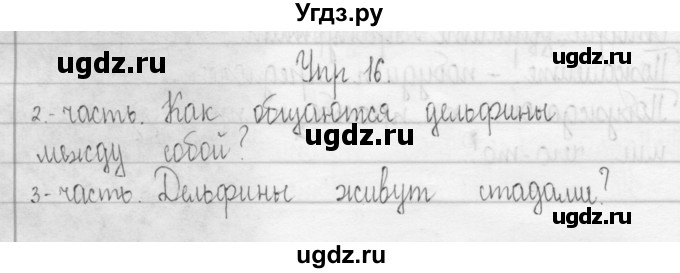 Угдз.ру
Упр 16.
ugdz.ru ugdz.ru
2.-часть. Как общаются дельфины
между собой?
ugdz.ru ugdz.ru
3-часть. Дельфины живут стадами?
ugdz.ru ugdz.ru
ugdz.ru